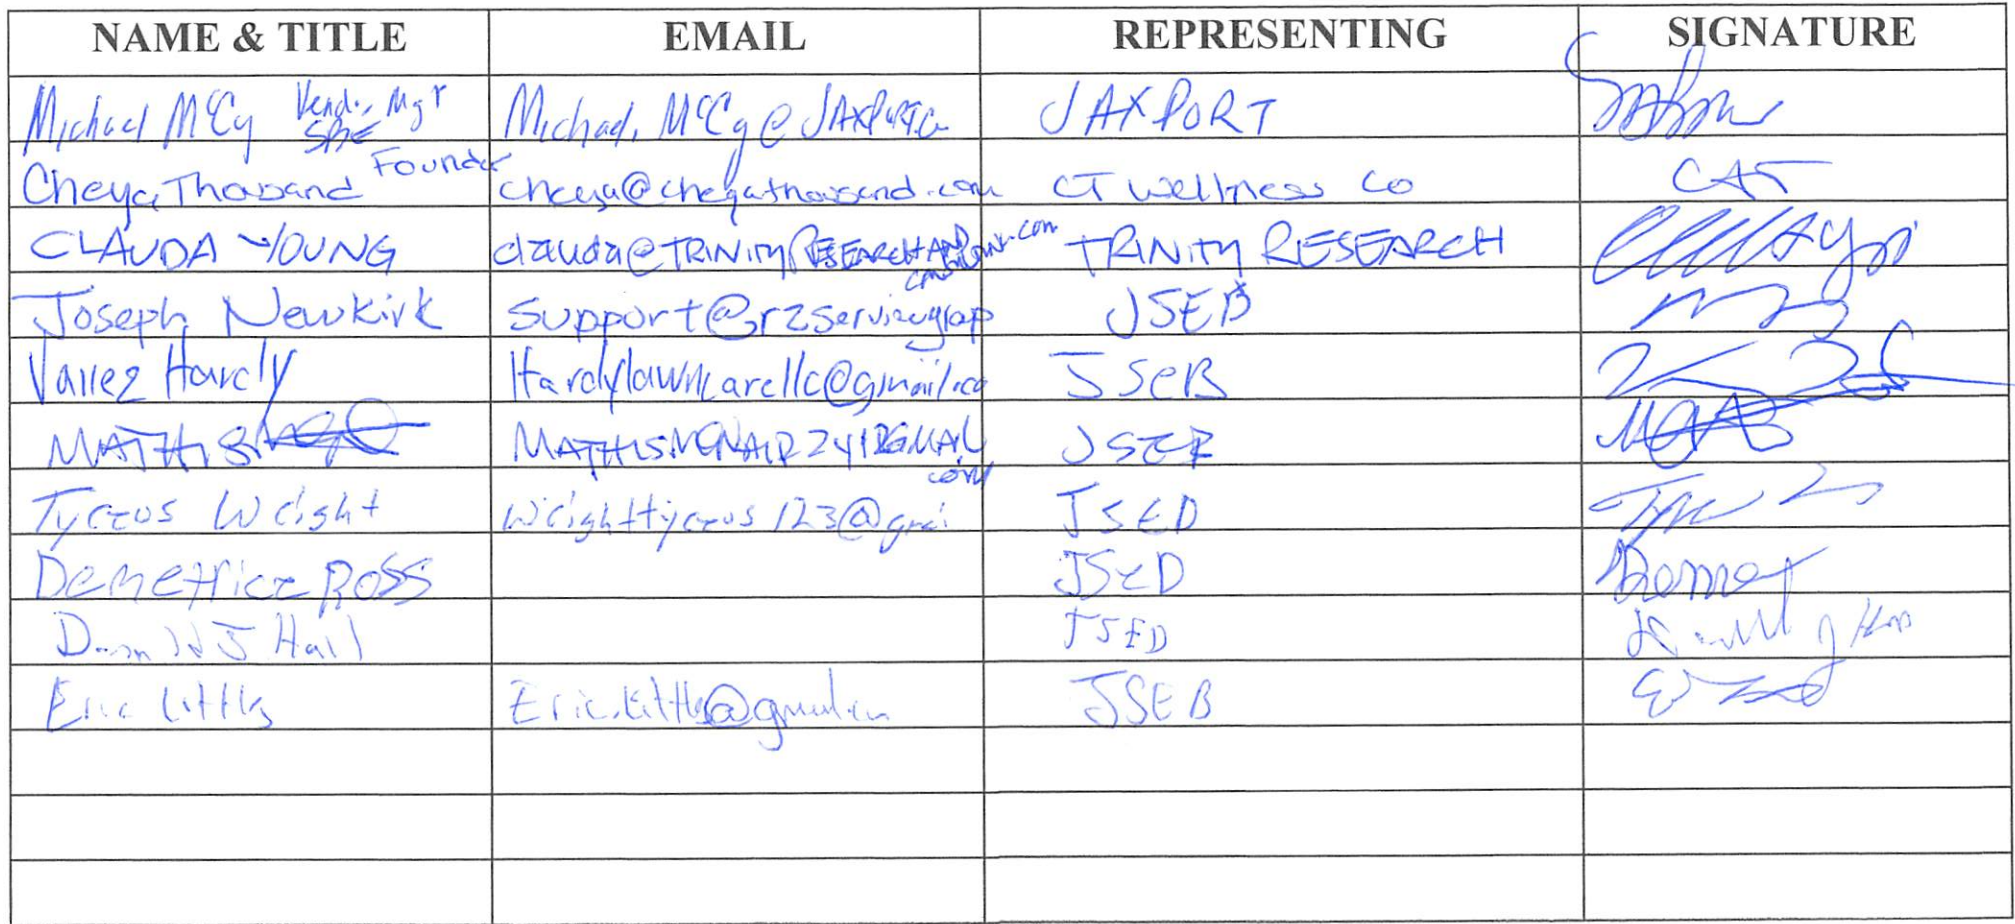 NAME & TITLE EMAIL REPRESENTING SIGNATURE
Michael McCy Vendor Mgr SBE JAXPORT
Cheya Thousand Founder cheya@cheyathousand.com CT Wellness Co CAT
CLAUDA YOUNG clauda@TRINITYRESEARCHAND .com TRINITY RESEARCH
Joseph Newkirk support@rzservicegroup JSEB
Vallez Hardy Hardylawncarellc@gmail.co JSEB
MATHIS MATHISMCNAIR241@GMAIL.com JSEB
Tyceus Wright wrighttyceus123@gmai JSED
Demetrice ROSS JSED
Donald J Hall JSED
Eric Little JSEB